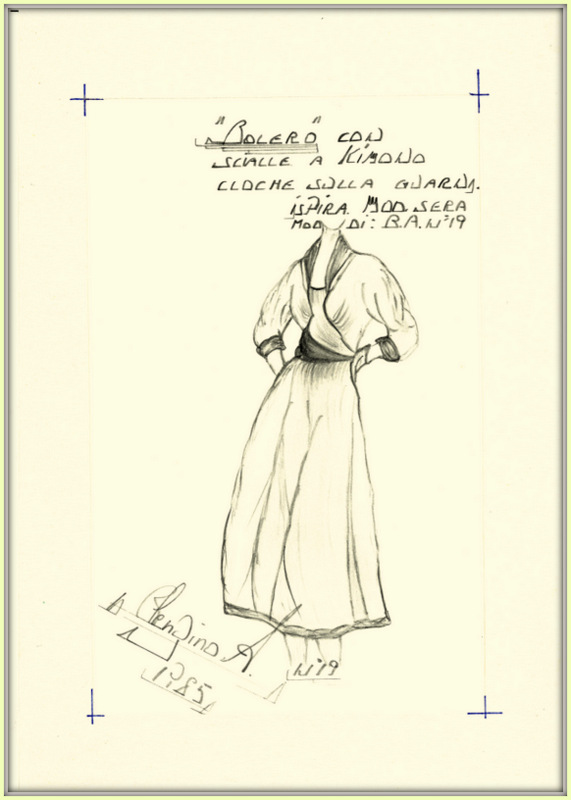 "BOLERO" CON
SCIALLE A KIMONO
CLOCHE SULLA GUARNI.
ISPIRA. MOD. SERA
MOD. DI: B.A. N°19
A.
N°19